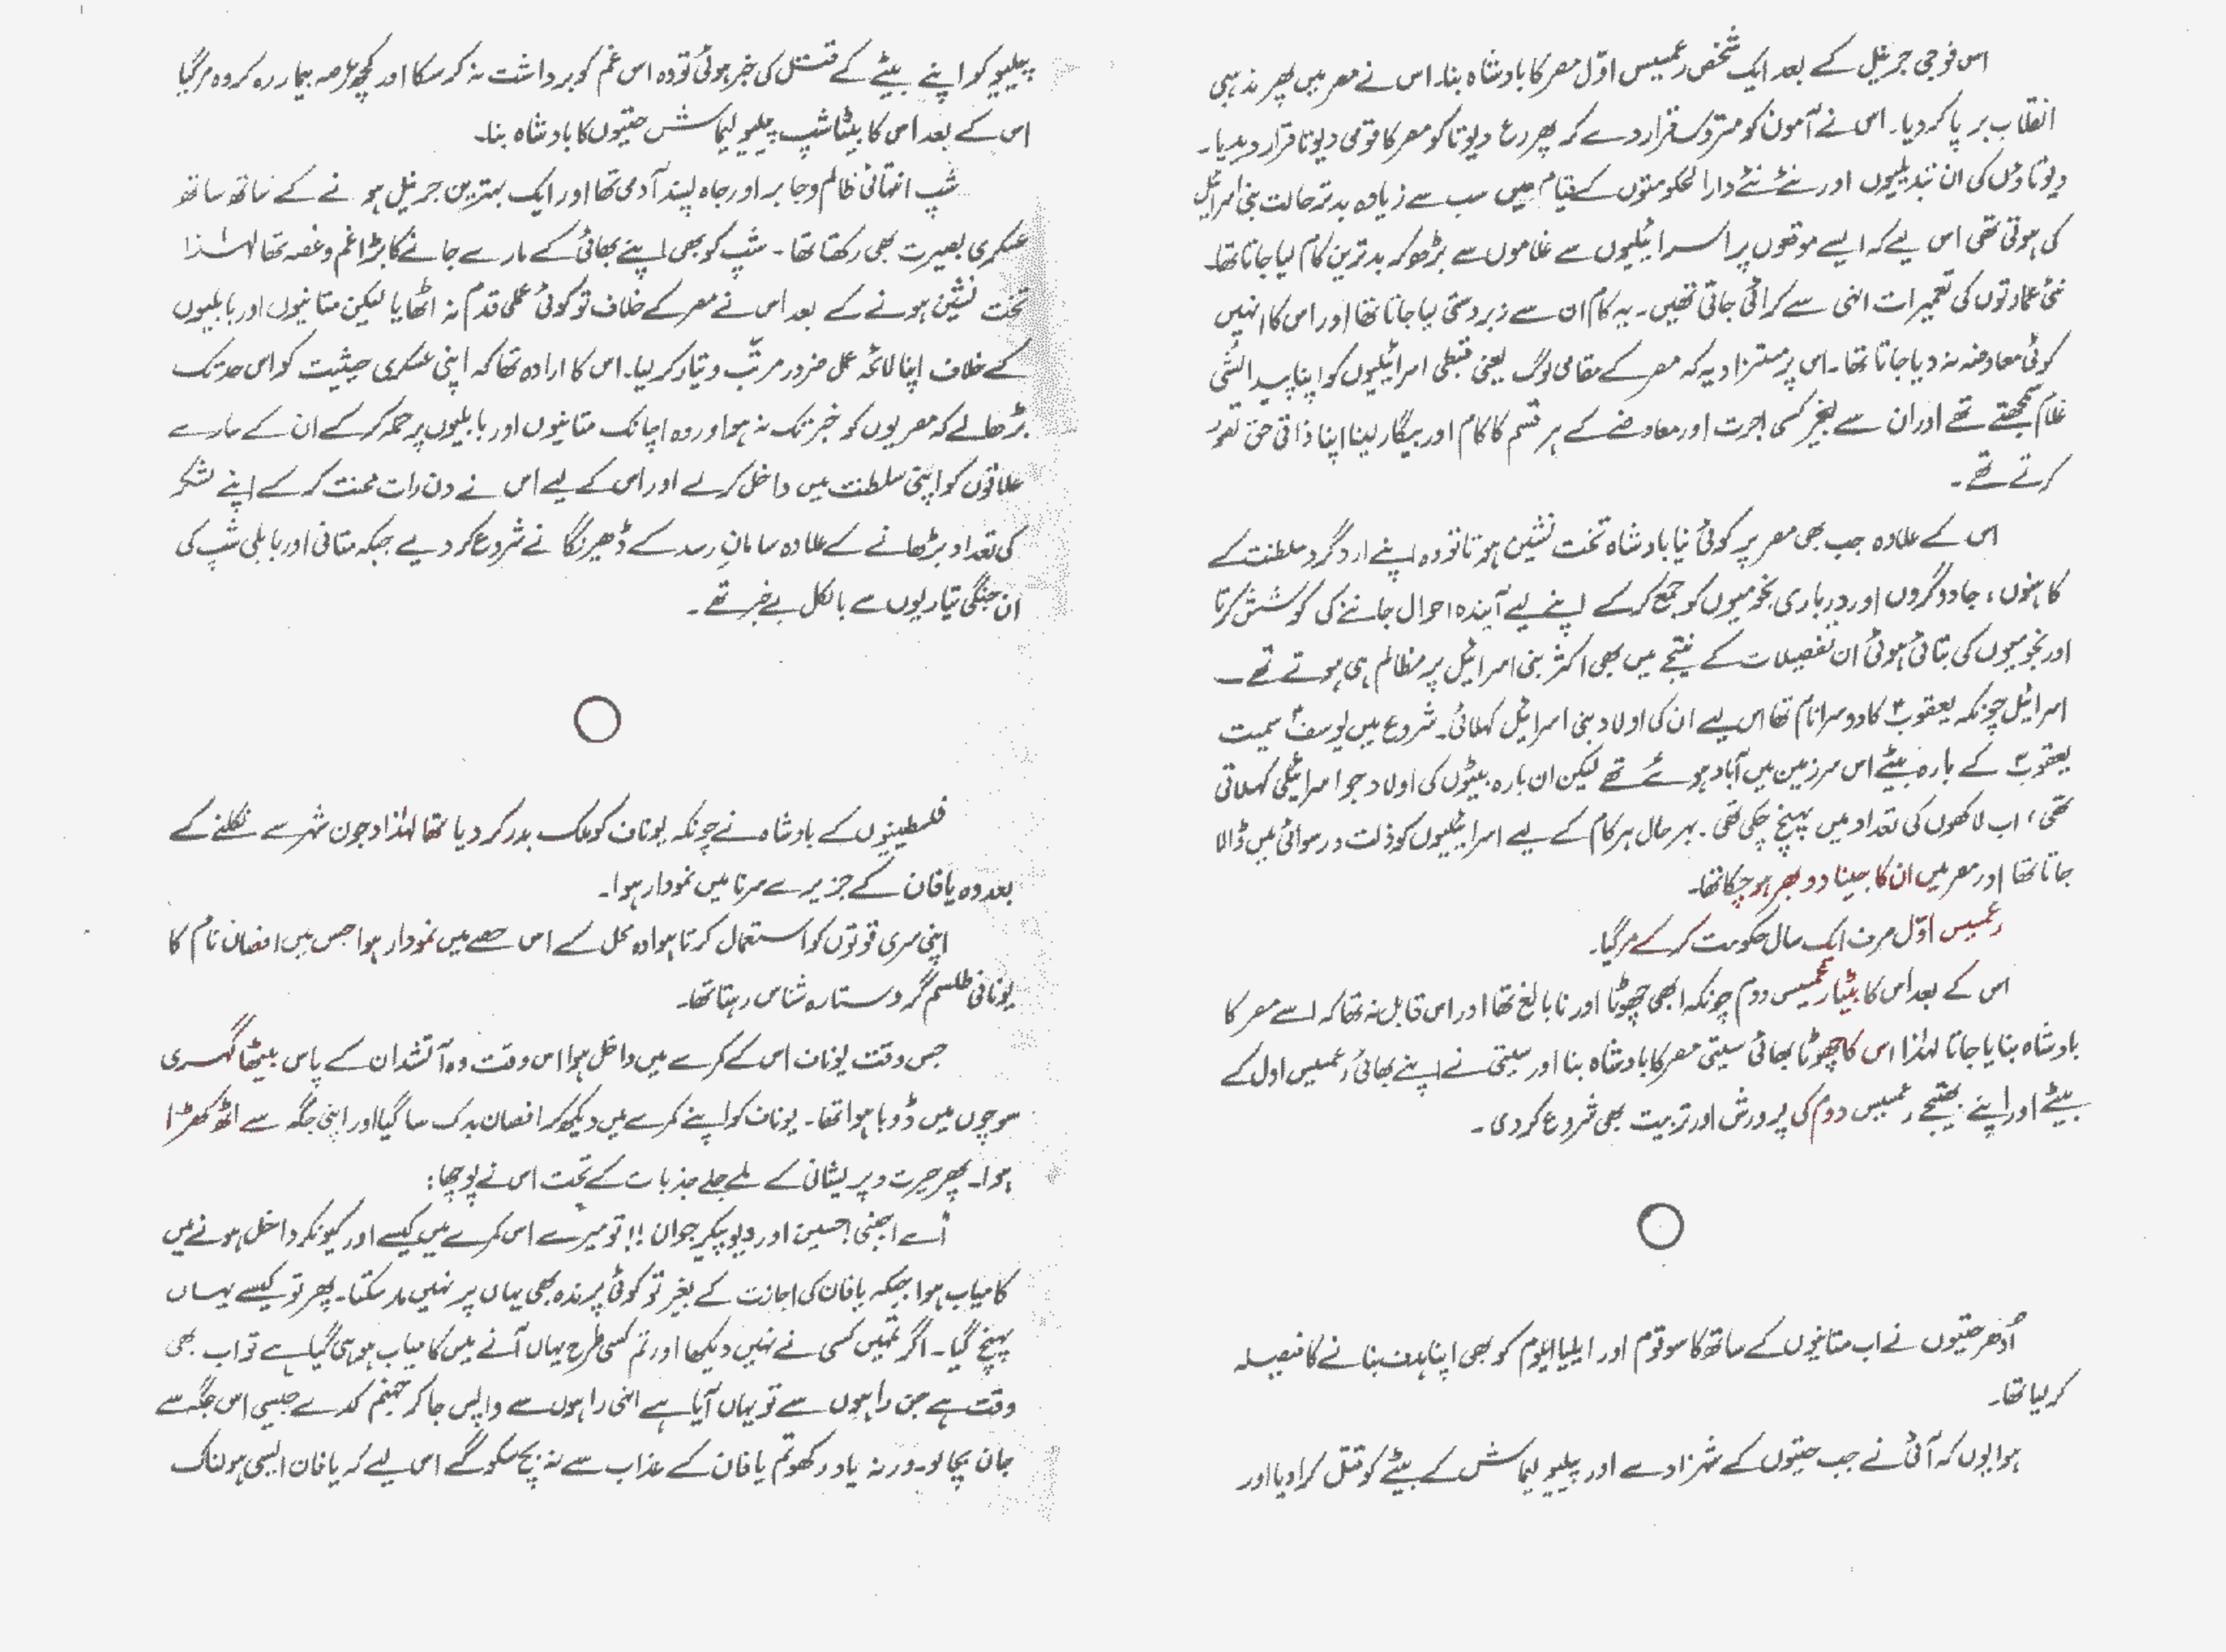 اس فوجی جرنیل کے بعد ایک شخص رعمیس اوّل مصر کا بادشاہ بنا۔ اس نے مصر میں پھر مذہبی
انقلاب برپا کر دیا۔ اس نے آمون کو متروک قرار دے کر پھر رع دیوتا کو مصر کا قومی دیوتا قرار دیدیا۔
دیوتاؤں کی ان تبدیلیوں اور نئے نئے دارالحکومتوں کے قیام میں سب سے زیادہ بدتر حالت بنی اسرائیل
کی ہوتی تھی اس لیے کہ ایسے موقعوں پر اسرائیلیوں سے غلاموں سے بڑھ کر بدترین کام لیا جاتا تھا۔
نئی عمارتوں کی تعمیرات انہی سے کرائی جاتی تھیں۔ یہ کام ان سے زبردستی لیا جاتا تھا اور اس کا انہیں
کوئی معاوضہ نہ دیا جاتا تھا۔ اس پر مستزاد یہ کہ مصر کے مقامی لوگ یعنی قبطی اسرائیلیوں کو اپنا پیدائشی
غلام سمجھتے تھے اور ان سے بغیر کسی اجرت اور معاوضے کے ہر قسم کا کام اور بیگار لینا اپنا ذاتی حق تصور
کرتے تھے۔
اس کے علاوہ جب بھی مصر پر کوئی نیا بادشاہ تخت نشین ہوتا تو وہ اپنے ارد گرد سلطنت کے
کاہنوں، جادوگروں اور درباری نجومیوں کو جمع کر کے اپنے لیے آیندہ احوال جاننے کی کوشش کرتا
اور نجومیوں کی بتائی ہوئی ان تفصیلات کے نتیجے میں بھی اکثر بنی اسرائیل پر مظالم ہی ہوتے تھے۔
اسرائیل چونکہ یعقوبؑ کا دوسرا نام تھا اس لیے ان کی اولاد بنی اسرائیل کہلائی۔ شروع میں یوسفؑ سمیت
یعقوبؑ کے بارہ بیٹے اس سرزمین میں آباد ہوئے تھے لیکن ان بارہ بیٹوں کی اولاد جو اسرائیلی کہلاتی
تھی، اب لاکھوں کی تعداد میں پہنچ چکی تھی۔ بہر حال ہر کام کے لیے اسرائیلیوں کو ذلت و رسوائی میں ڈالا
جاتا تھا اور مصر میں ان کا جینا دوبھر ہو چکا تھا۔
رعمیس اوّل صرف ایک سال حکومت کر کے مر گیا۔
اس کے بعد اس کا بیٹا رعمیس دوم چونکہ ابھی چھوٹا اور نابالغ تھا اور اس قابل نہ تھا کہ اسے مصر کا
بادشاہ بنایا جاتا لہٰذا اس کا چھوٹا بھائی سیتی مصر کا بادشاہ بنا اور سیتی نے اپنے بھائی رعمیس اول کے
بیٹے اور اپنے بھتیجے رعمیس دوم کی پرورش اور تربیت بھی شروع کر دی۔
اُدھر حتیوں نے اب متانیوں کے ساتھ کاسوتوم اور ایلیا ایلوم کو بھی اپنا ہدف بنانے کا فیصلہ
کر لیا تھا۔
ہوا یوں کہ آئی نے جب حتیوں کے شہزادے اور پیلیو لیماش کے بیٹے کو قتل کرا دیا اور
پیلیو کو اپنے بیٹے کے قتل کی خبر ہوئی تو وہ اس غم کو برداشت نہ کر سکا اور کچھ عرصہ بیمار رہ کر وہ مر گیا
اس کے بعد اس کا بیٹا شپ پیلیو لیماش حتیوں کا بادشاہ بنا۔
شپ انتہائی ظالم و جابر اور جاہ پسند آدمی تھا اور ایک بہترین جرنیل ہونے کے ساتھ ساتھ
عسکری بصیرت بھی رکھتا تھا۔ شپ کو بھی اپنے بھائی کے مارے جانے کا بڑا غم و غصہ تھا لہٰذا
تخت نشین ہونے کے بعد اس نے مصر کے خلاف تو کوئی عملی قدم نہ اٹھایا لیکن متانیوں اور بابلیوں
کے خلاف اپنا لائحہ عمل ضرور مرتّب و تیار کر لیا۔ اس کا ارادہ تھا کہ اپنی عسکری حیثیت کو اس حد تک
بڑھا لے کہ مصریوں کو خبر تک نہ ہو اور وہ اچانک متانیوں اور بابلیوں پر حملہ کر کے ان کے سارے
علاقوں کو اپنی سلطنت میں داخل کر لے اور اس کے لیے اس نے دن رات محنت کر کے اپنے لشکر
کی تعداد بڑھانے کے علاوہ سامانِ رسد کے ڈھیر لگانے شروع کر دیے جبکہ متانی اور بابلی شپ کی
ان جنگی تیاریوں سے بالکل بے خبر تھے۔
فلسطینیوں کے بادشاہ نے چونکہ یوناف کو ملک بدر کر دیا تھا لہٰذا دجون شہر سے نکلنے کے
بعد وہ یافان کے جزیرے سرنا میں نمودار ہوا۔
اپنی سری قوتوں کو استعمال کرتا ہوا وہ محل کے اس حصے میں نمودار ہوا جس میں افصان نام کا
یونانی طلسم گر و ستارہ شناس رہتا تھا۔
جس وقت یوناف اس کے کمرے میں داخل ہوا اس وقت وہ آتشدان کے پاس بیٹھا گہری
سوچوں میں ڈوبا ہوا تھا۔ یوناف کو اپنے کمرے میں دیکھ کر افصان بدک سا گیا اور اپنی جگہ سے اٹھ کھڑا
ہوا۔ پھر حیرت و پریشانی کے ملے جلے جذبات کے تحت اس نے پوچھا:
اُے اجنبی حسین اور دیو پیکر جوان !! تو میرے اس کمرے میں کیسے اور کیونکر داخل ہونے میں
کامیاب ہوا جبکہ یافان کی اجازت کے بغیر تو کوئی پرندہ بھی یہاں پر نہیں مار سکتا۔ پھر تو کیسے یہاں
پہنچ گیا۔ اگر تمہیں کسی نے نہیں دیکھا اور تم کسی طرح یہاں آنے میں کامیاب ہو ہی گیا ہے تو اب بھی
وقت ہے جن راہوں سے تو یہاں آیا ہے انہی راہوں سے واپس جا کر جہنم کدے جیسی اس جگہ سے
جان بچا لو۔ ورنہ یاد رکھو تم یافان کے عذاب سے نہ بچ سکو گے اس لیے کہ یافان ایسی ہولناک